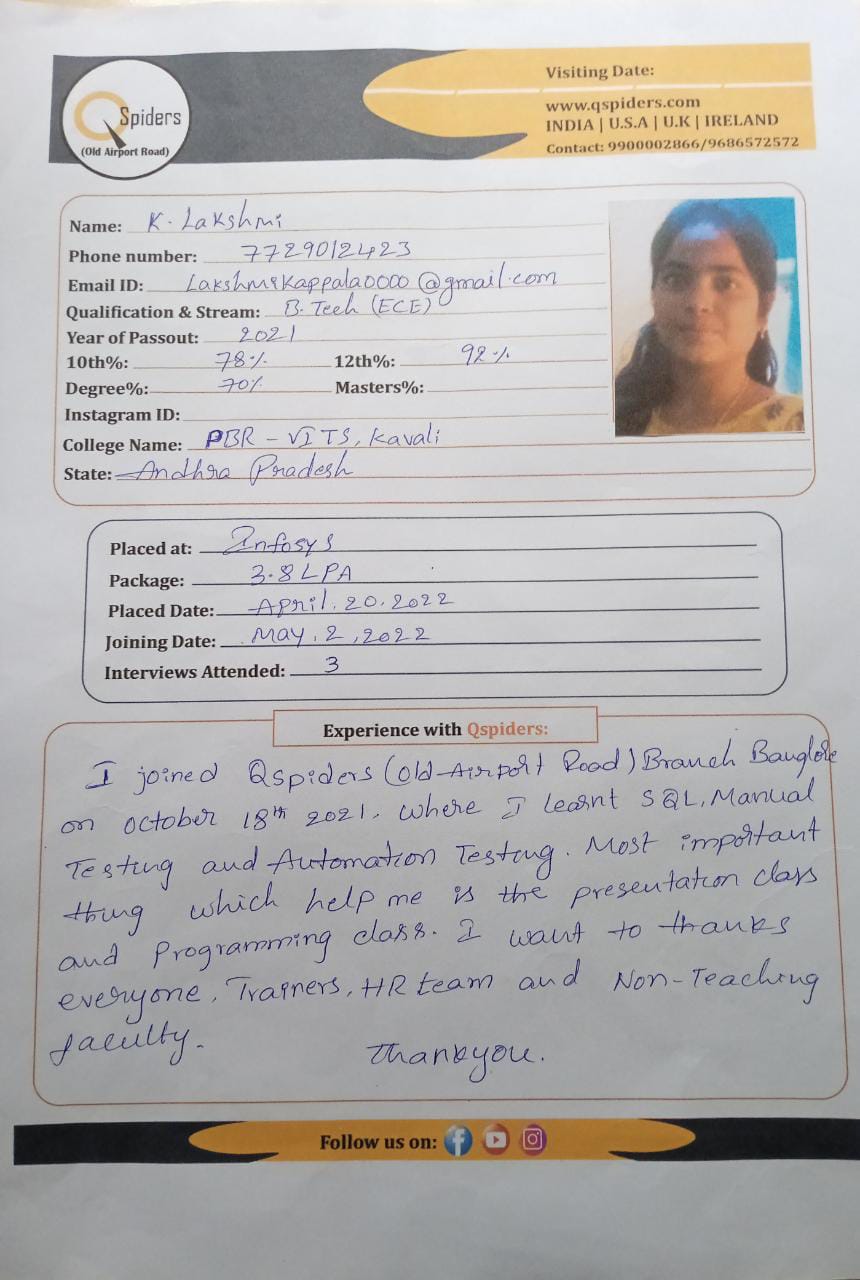 QSpiders
(Old Airport Road)
Visiting Date:
www.qspiders.com
INDIA | U.S.A | U.K | IRELAND
Contact: 9900002866/9686572572
Name: K. Lakshmi
Phone number: 7729012423
Email ID: Lakshmikappala0000@gmail.com
Qualification & Stream: B.Tech (ECE)
Year of Passout: 2021
10th%: 78% 12th%: 92%
Degree%: 70% Masters%:
Instagram ID:
College Name: PBR - VITS, Kavali
State: Andhra Pradesh
Placed at: Infosys
Package: 3.8 LPA
Placed Date: April. 20. 2022
Joining Date: May. 2, 2022
Interviews Attended: 3
Experience with Qspiders:
I joined Qspiders (Old-Airport Road) Branch Banglore
on October 18th 2021. Where I learnt SQL, Manual
Testing and Automation Testing. Most important
thing which help me is the presentation class
and Programming class. I want to thanks
everyone, Trainers, HR team and Non-Teaching
faculty.
Thankyou.
Follow us on: